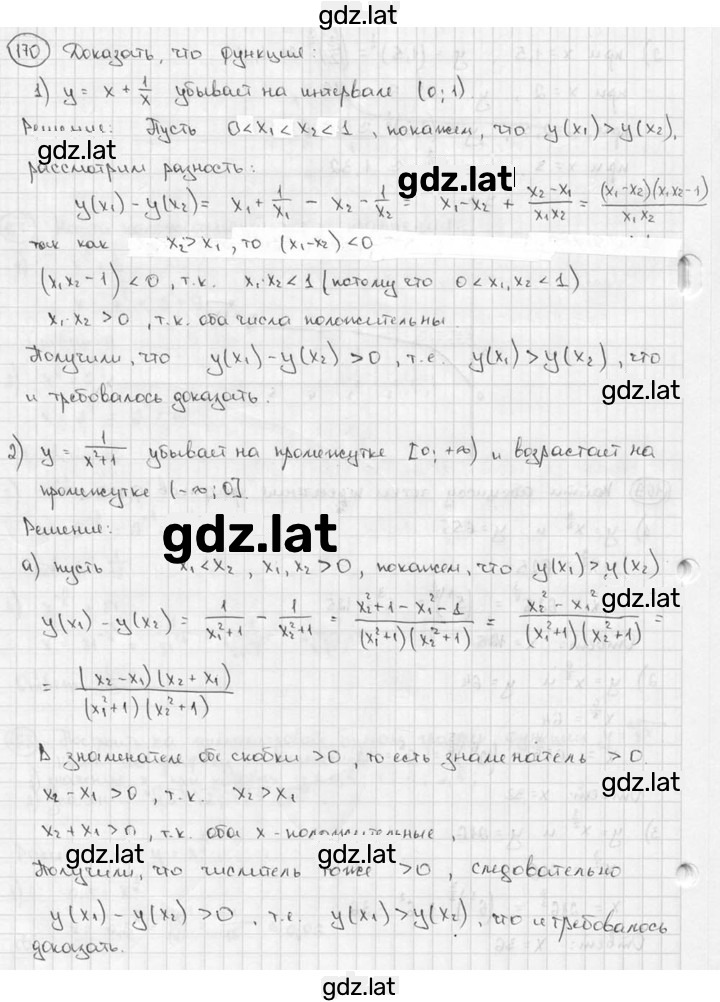 gdz.lat
170 Доказать, что функция:
1) y = x + 1/x убывает на интервале (0; 1)
Решение: Пусть 0 < x₁ < x₂ < 1, покажем, что y(x₁) > y(x₂),
gdz.lat
рассмотрим разность:
gdz.lat
y(x₁) - y(x₂) = x₁ + 1/x₁ - x₂ - 1/x₂ = x₁ - x₂ + (x₂ - x₁)/(x₁x₂) = (x₁ - x₂)(x₁x₂ - 1)/(x₁x₂)
так как x₂ > x₁, то (x₁ - x₂) < 0
(x₁x₂ - 1) < 0, т.к. x₁·x₂ < 1 (потому что 0 < x₁, x₂ < 1)
x₁·x₂ > 0, т.к. оба числа положительны.
Получили, что y(x₁) - y(x₂) > 0, т.е. y(x₁) > y(x₂), что
и требовалось доказать.
gdz.lat
2) y = 1/(x²+1) убывает на промежутке [0; +∞) и возрастает на
промежутке (-∞; 0].
Решение:
gdz.lat
а) пусть x₁ < x₂, x₁, x₂ > 0, покажем, что y(x₁) > y(x₂)
gdz.lat
y(x₁) - y(x₂) = 1/(x₁²+1) - 1/(x₂²+1) = (x₂²+1-x₁²-1)/((x₁²+1)(x₂²+1)) = (x₂²-x₁²)/((x₁²+1)(x₂²+1)) =
= (x₂-x₁)(x₂+x₁)/((x₁²+1)(x₂²+1))
В знаменателе обе скобки > 0, то есть знаменатель > 0.
gdz.lat
x₂ - x₁ > 0, т.к. x₂ > x₁
x₂ + x₁ > 0, т.к. оба x - положительные,
gdz.lat
gdz.lat
Получили, что числитель тоже > 0, следовательно
y(x₁) - y(x₂) > 0, т.е. y(x₁) > y(x₂), что и требовалось
доказать.
gdz.lat